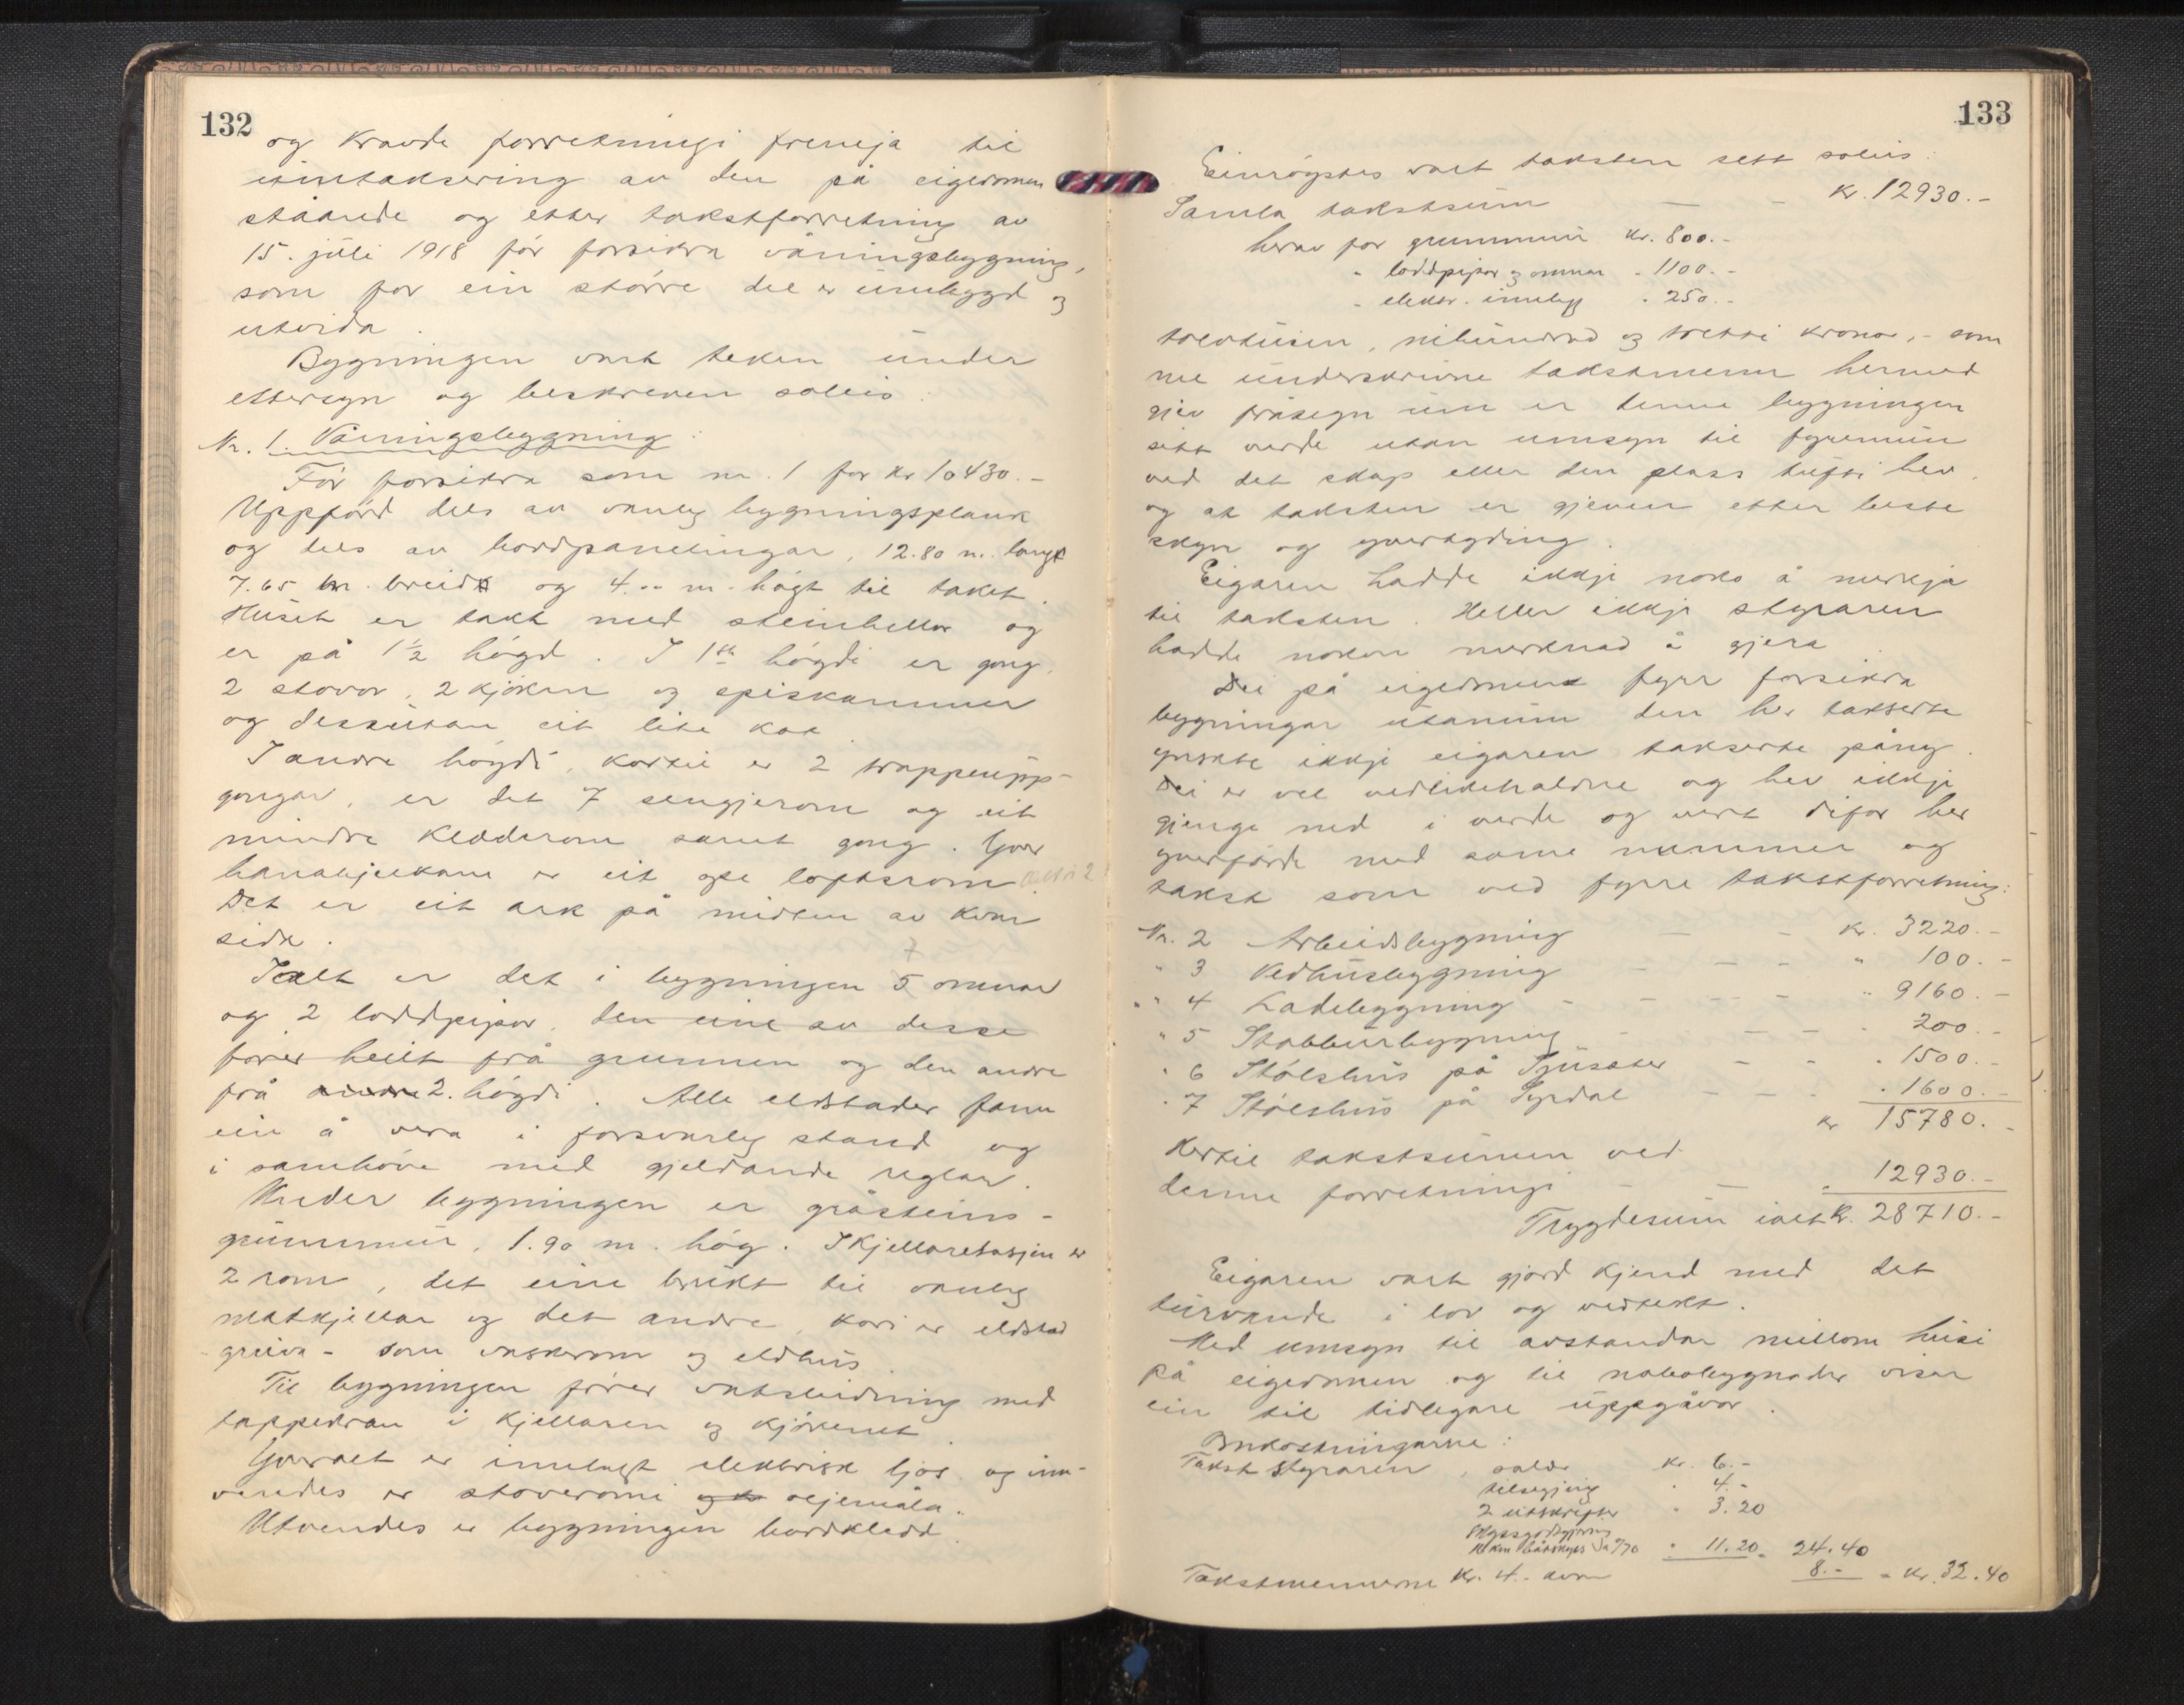 132
og kravde forretningi fremja til
umtaksering av den på eigedomen
ståande og etter takstforretning av
15. juli 1918 før forsikra våningsbygning,
som for ein større del er umbygd og
utvida.
Bygningen vart teken under
ettersyn og beskreven soleis:
Nr. 1. Våningsbygning:
Før forsikra som nr. 1 for kr 10430.-
Uppførd dels av vanleg bygningsplank
og dels av bordpanelingar, 12.80 m. lang
7.65 m. breid og 4.00 m. høgt til taket.
Huset er takt med steinhellor og
er på 1½ høgd. I 1ste høgdi er gong,
2 stovor, 2 kjøken og spiskammer
og dessutan eit lite kot.
I andre høgdi, kortil er 2 trappeupp-
gongar, er det 7 sengjerom og eit
mindre klæderom samt gong. Yver
hanabjelkane er eit ope loftsrom.
Det er eit ark på midten av kvar
side.
Ialt er det i bygningen 5 7 omnar
og 2 loddpipor, den eine av desse
fører heilt frå grunnen og den andre
frå andre 2. høgdi. Alle eldstader fann
ein å vera i forsvarleg stand og
i samhøve med gjeldande reglar.
Under bygningen er gråsteins-
grunnmur, 1.90 m. høg. I kjellaretasjen er
2 rom, det eine brukt til vanleg
matkjellar og det andre, kori er eldstad
- gruva - som vaskerom og eldhus.
Til bygningen fører vatsleidning med
tappekran i kjellaren og kjøkenet.
Yveralt er innlagt elektrisk ljos og inn-
vendes er stoveromi og oljemåla.
Utvendes er bygningen bordkledd.
133
Einrøystes vart taksten sett soleis:
Samla takstsum - - kr. 12930.-
herav for grunnmur kr. 800.-
" loddpipor og omnar " 1100.-
" elektr. innlegg " 250.-
tolvtusen, nihundrad og tretti kronor,- som
me underskrivne takstmenn hermed
gjev fråsegn um er denne bygningen
sitt verde utan umsyn til fyremun
ved det skap eller den plass tufti hev,
og at taksten er gjeven etter beste
skyn og yvertyding.
Eigaren hadde ikkje noko å merkja
til taksten. Heller ikkje styraren
hadde nokon merknad å gjera.
Dei på eigedomen fyrr forsikra
bygningar utanum den her takserte
ynskte ikkje eigaren takserte påny.
Dei er vel vedlikehaldne og hev ikkje
gjenge ned i verde og vert difor her
yverførde med same nummer og
takst som ved fyrre takstforretning:
Nr. 2 Arbeidsbygning - - kr. 3220.-
" 3 Vedhusbygning - - - " 100.-
" 4 Ladebygning - - - - " 9160.-
" 5 Stabbursbygning - - - - " 200.-
" 6 Stølshus på Sjusæter - - " 1500.-
" 7 Stølshus på Syrdal - - - " 1600.-
kr 15780.-
Hertil takstsumen ved
denne forretningi - - " 12930.-
Trygdesum ialt kr. 28710.-
Eigaren vart gjord kjend med det
turvande i lov og vedtekt.
Med umsyn til avstandar millom husi
på eigedomen og til nabobygnader viser
ein til tidlegare uppgåvor.
Omkostningarne:
Takststyraren, salær kr. 6.-
tilsegjing " 4.-
2 utskrifter " 3.20
Skyssgodtgjering
km båtskyss a 0/70 " 11.20 = 24.40
Takstmennerne kr. 4.- kvar 8.- = kr. 32.40